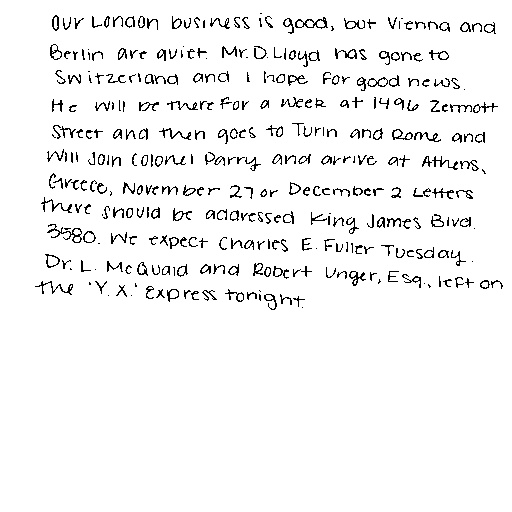 Our London business is good, but Vienna and
Berlin are quiet. Mr. D. Lloyd has gone to
Switzerland and I hope for good news.
He will be there for a week at 1496 Zermott
Street and then goes to Turin and Rome and
will join Colonel Parry and arrive at Athens,
Greece, November 27 or December 2. Letters
there should be addressed King James Blvd.
3580. We expect Charles E. Fuller Tuesday.
Dr. L. McQuaid and Robert Unger, Esq., left on
the 'Y. X.' Express tonight.